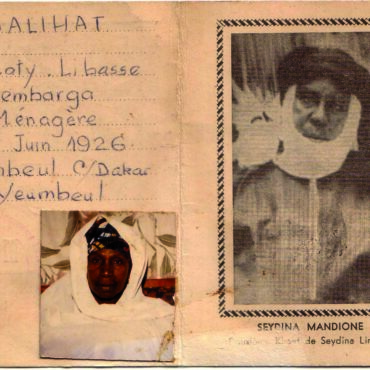 SALIHAT
Coty. Libasse
embarga
Ménagère
Juin 1926
nbeul C/Dakar
Yeumbeul
SEYDINA MANDIONE
de Seydina Lim